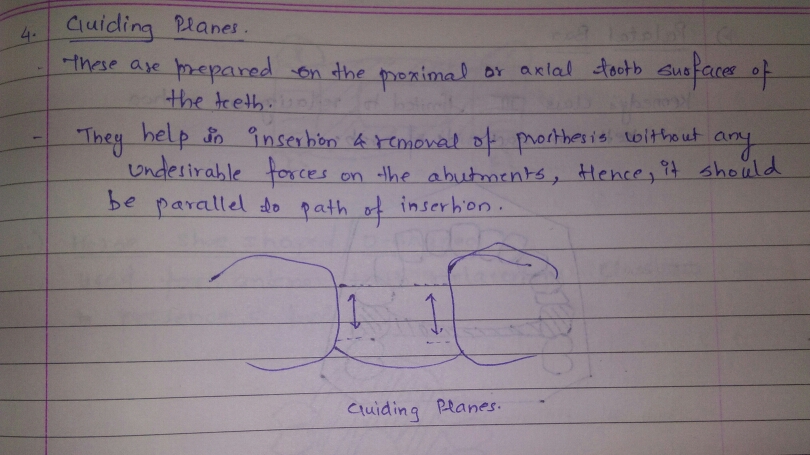 4. Guiding Planes.
- These are prepared on the proximal or axial tooth surfaces of
the teeth.
- They help in insertion & removal of prosthesis without any
undesirable forces on the abutments, Hence, it should
be parallel to path of insertion.
Guiding Planes.